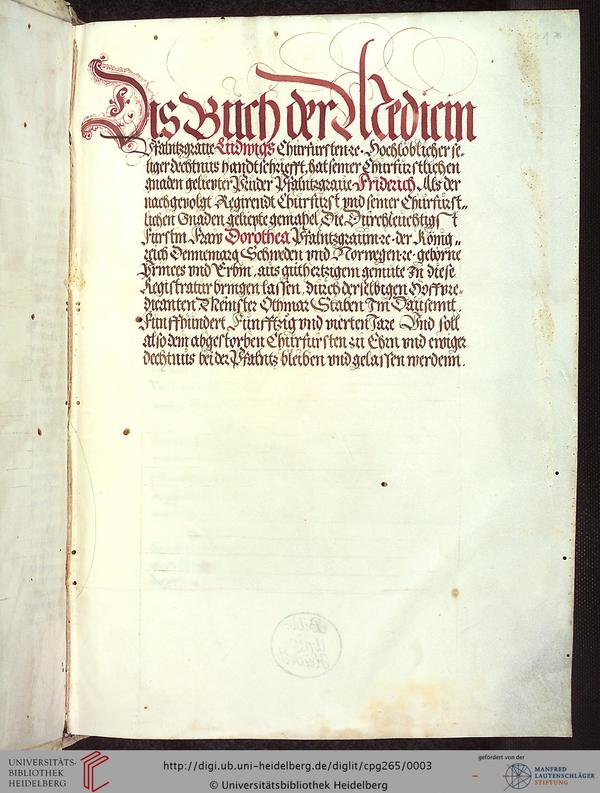 Dis Buch der Medicin
Pfaltzgraue Ludwigs Churfursten ⁊c. Hochloblicher se-
liger dechtnus handtschriefft, hat seiner Churfurstlichen
gnaden geliepter Bruder Pfaltzgraue Friderich, Als der
nachgevolgt Regirendt Churfurst vnd seiner Churfurst-
lichen Gnaden geliepte gemahel, Die Durchleuchtigst
Furstin Fraw Dorothea Pfaltzgrauin ⁊c. der König-
reich Dennemarg Schweden vnd Norwegen ⁊c. geborne
Princes vnd Erbin, aus guthertzigem gemute Zu diese
Registratur bringen lassen, durch derselbigen Hoffpre-
dicanten Meinster Othmar Staben Im Dausennt
Funffhundert Funfftzig vnd vierten Jare Vnd soll
also dem abgestorben Churfursten zu Ehrn vnd ewiger
dechtnus bei der Pfaltz bleiben vnd gelassen werdenn.
UNIVERSITÄTS-
BIBLIOTHEK
HEIDELBERG
http://digi.ub.uni-heidelberg.de/diglit/cpg265/0003
© Universitätsbibliothek Heidelberg
gefördert von der
MANFRED
LAUTENSCHLÄGER
STIFTUNG